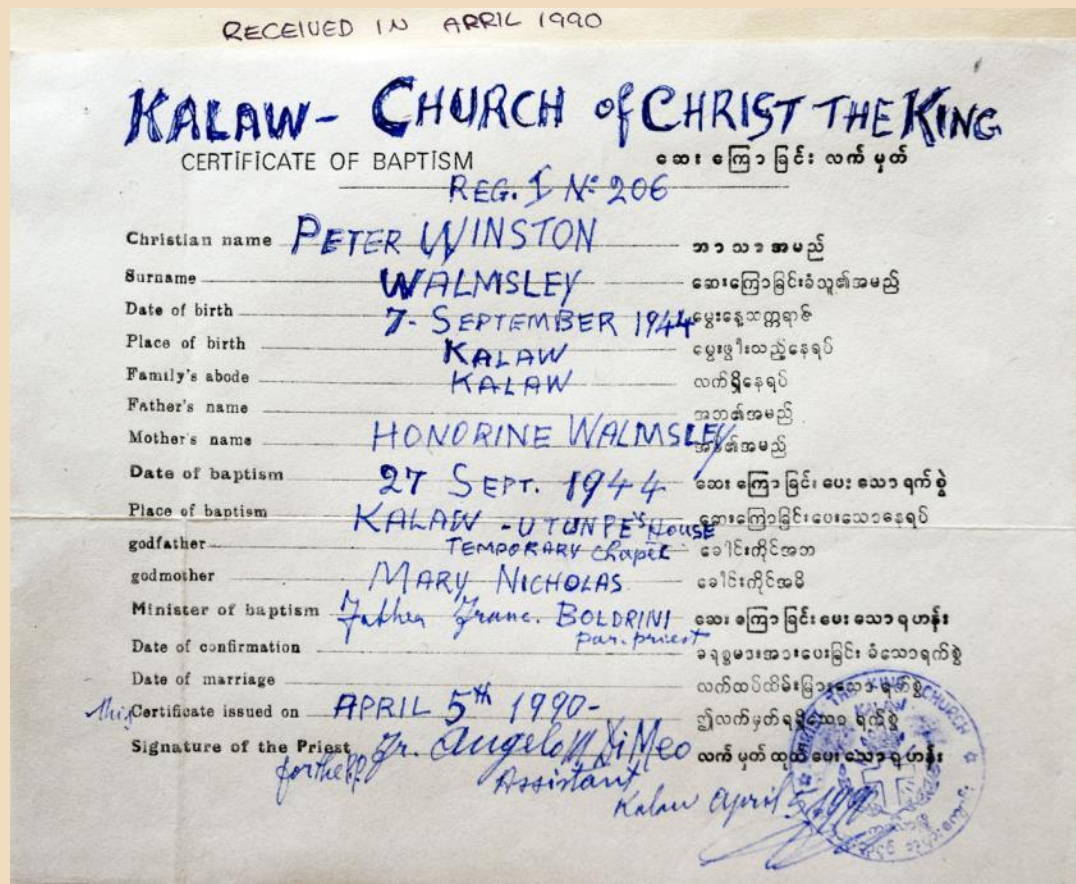 RECEIVED IN APRIL 1990
KALAW - CHURCH of CHRIST THE KING
CERTIFICATE OF BAPTISM ဆေး ကြော ခြင်း လက် မှတ်
REG. I Nº 206
Christian name PETER WINSTON ဘာသာအမည်
Surname WALMSLEY ဆေးကြောခြင်းခံသူ၏အမည်
Date of birth 7 - SEPTEMBER 1944 မွေးနေ့သက္ကရာဇ်
Place of birth KALAW မွေးဖွါးသည့်နေရပ်
Family's abode KALAW လက်ရှိနေရပ်
Father's name အဘ၏အမည်
Mother's name HONORINE WALMSLEY အမိ၏အမည်
Date of baptism 27 SEPT. 1944 ဆေး ကြော ခြင်း ပေး သော ရက် စွဲ
Place of baptism KALAW - U TUN PE'S House ဆေးကြောခြင်းပေးသောနေရပ်
TEMPORARY Chapel
godfather ခေါင်းကိုင်အဘ
godmother MARY NICHOLAS ခေါင်းကိုင်အမိ
Minister of baptism Father Franc. BOLDRINI ဆေး ကြော ခြင်း ပေး သော ရဟန်း
par. priest
Date of confirmation ခရစ္စမားအားပေးခြင်း ခံသောရက်စွဲ
Date of marriage လက်ထပ်ထိမ်းမြားသော ရက်စွဲ
this Certificate issued on APRIL 5th 1990- ဤလက်မှတ်ရရှိသော ရက်စွဲ
Signature of the Priest Fr. Angelo Di Meo လက် မှတ် ထုတ် ပေး သော ရဟန်း
for the P.P. Assistant
Kalaw April 5, 1990
THE KING CHURCH
KALAW